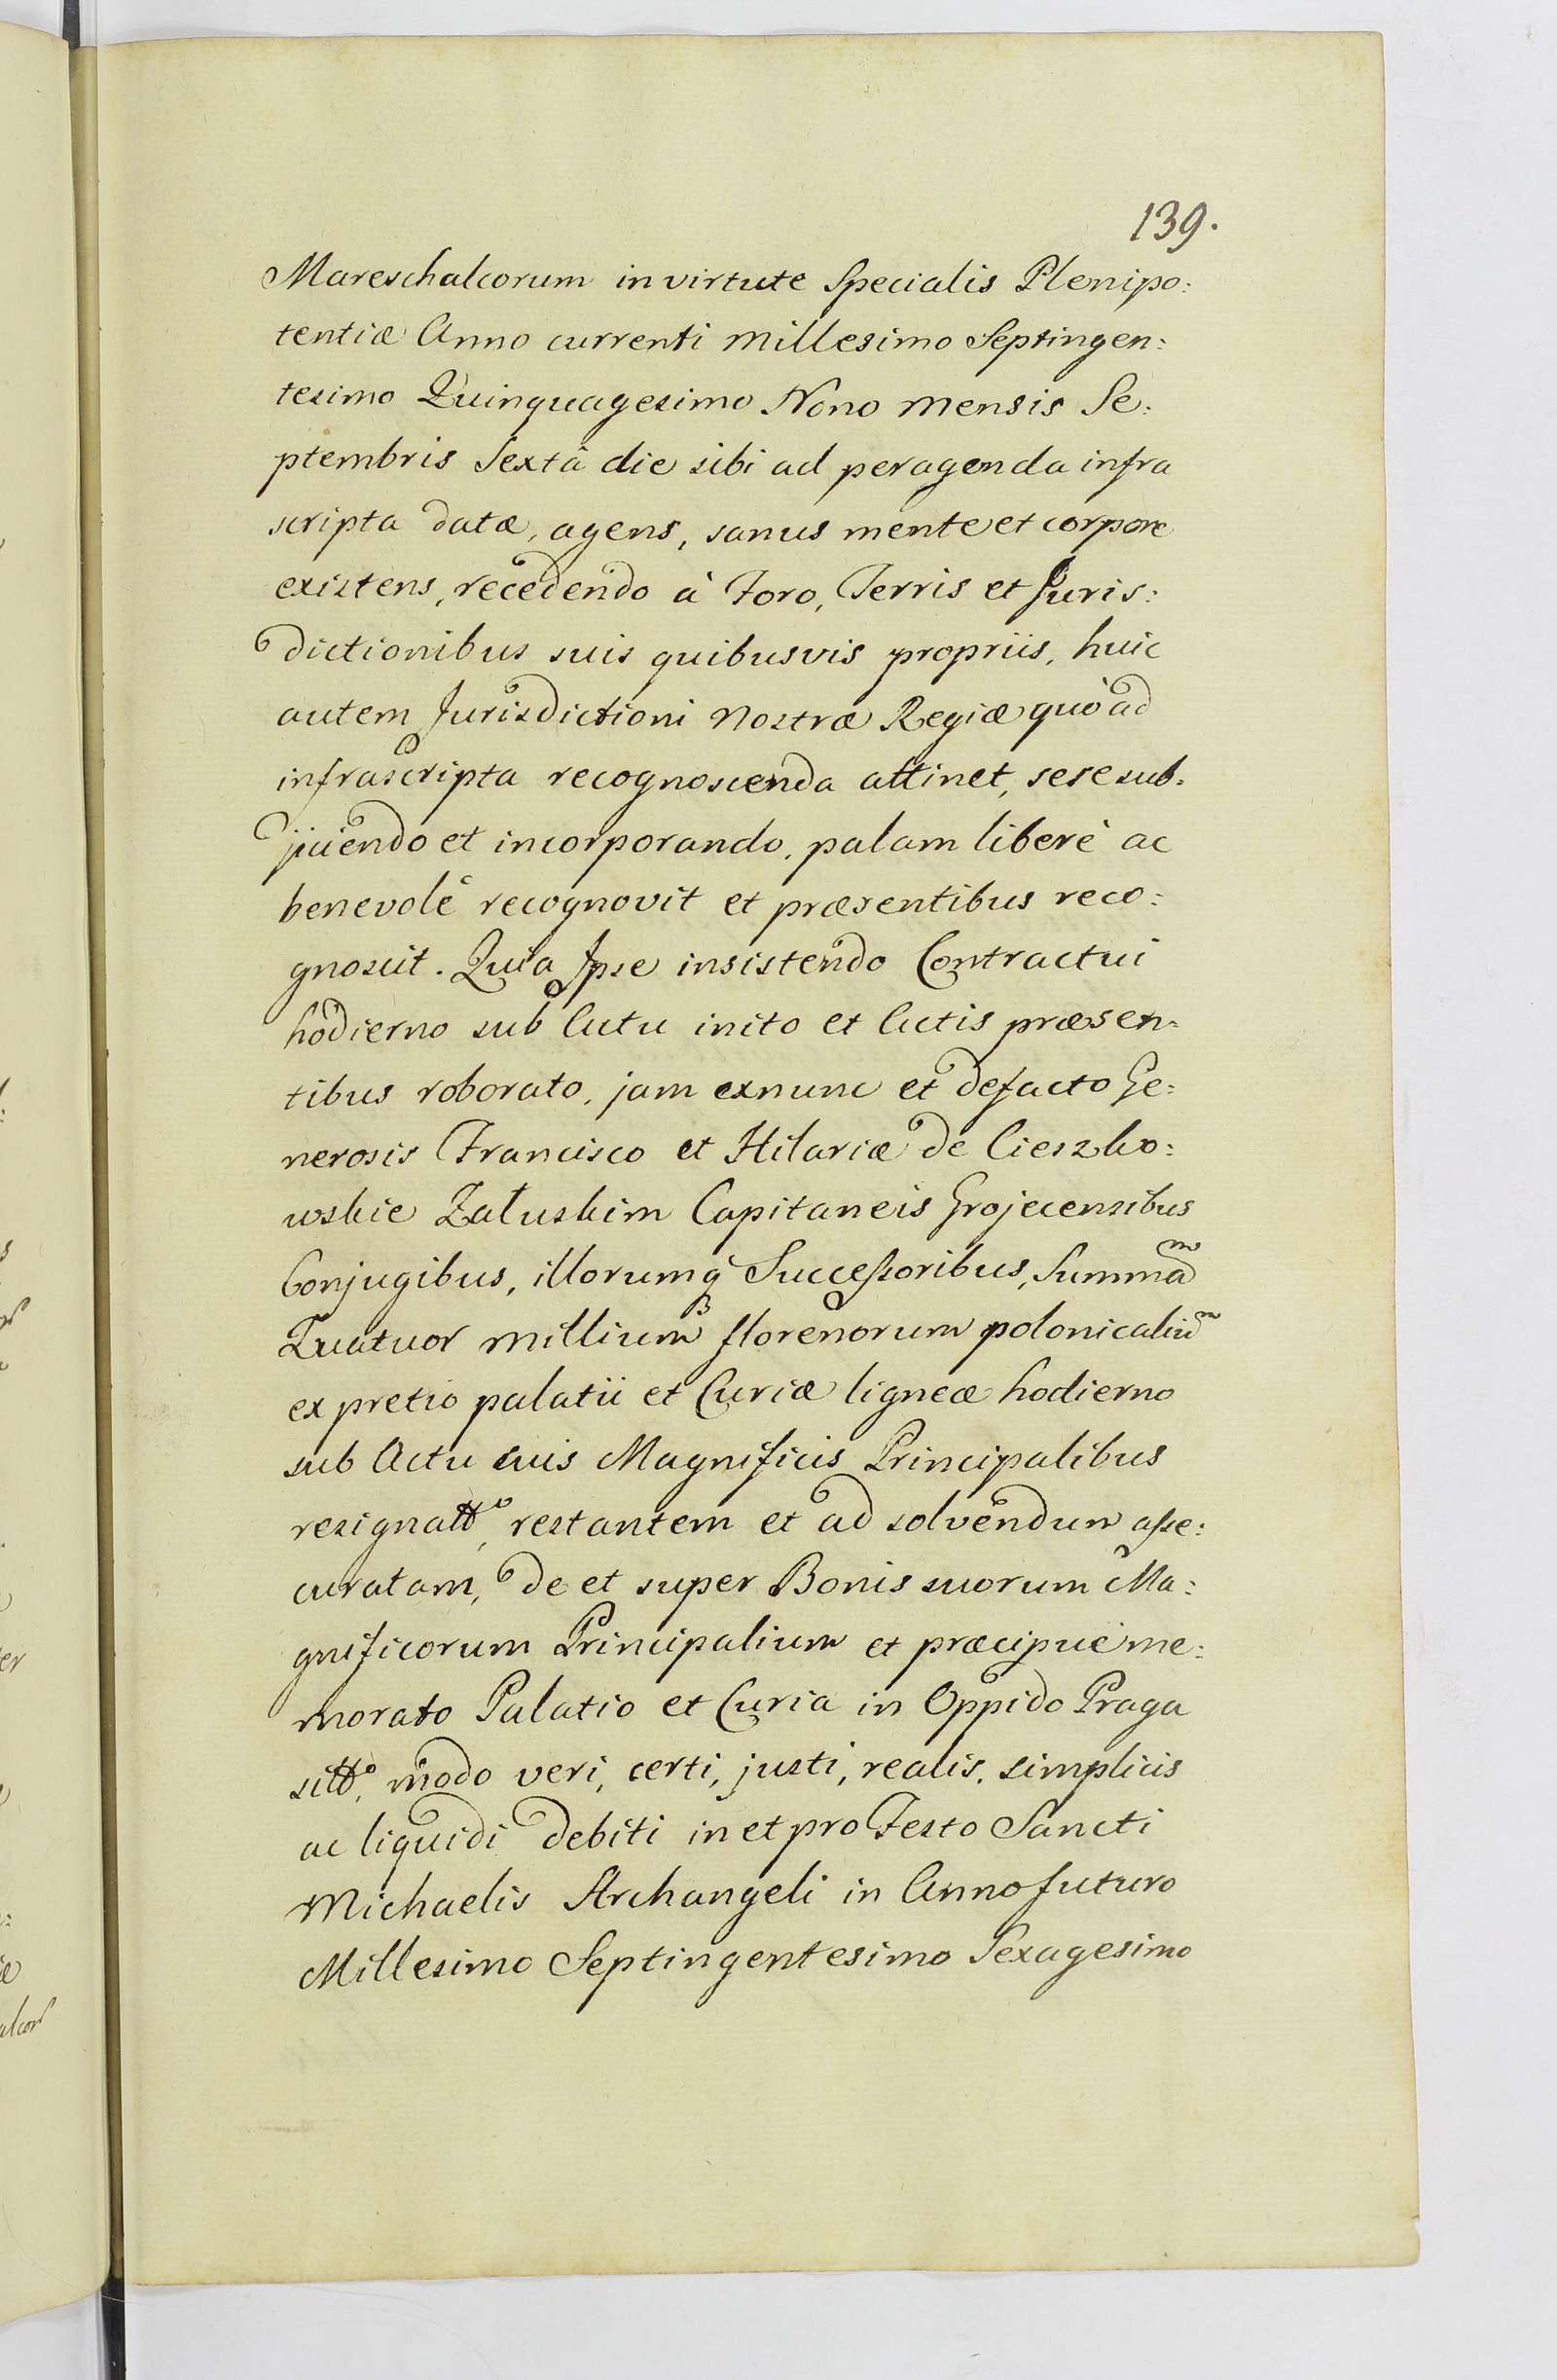 139.
Mareschalcorum in virtute Specialis Plenipo:
tentiæ Anno currenti Millesimo Septingen:
tesimo Quinquagesimo Nono Mensis Se:
ptembris Sextâ die sibi ad peragenda infra
scripta datæ, agens, sanus mente et corpore
existens, recedendo à Foro, Terris et Juris:
dictionibus suis quibusvis propriis, huic
autem Jurisdictioni Nostræ Regiæ quò ad
infrascripta recognoscenda attinet, sese sub:
jiciendo et incorporando, palam liberè ac
benevolè recognovit et præsentibus reco:
gnoscit. Quia Ipse insistendo Contractui
hodierno sub Actu inito et Actis præsen:
tibus roborato, jam exnunc et defacto Ge:
nerosis Francisco et Hilariæ de Cieszko:
wskie Załuskim Capitaneis Grojecensibus
Conjugibus, illorumq Successoribus, Summam
Quatuor Millium florenorum polonicalium
ex pretio palatii et Curiæ ligneæ hodierno
sub Actu suis Magnificis Principalibus
resignatto, restantem et ad solvendum asse:
curatam, de et super Bonis suorum Ma:
gnificorum Principalium et præcipuè me:
morato Palatio et Curia in Oppido Praga
sitto, modo veri, certi, justi, realis, simplicis
ac liquidi debiti in et pro Festo Sancti
Michaelis Archangeli in Anno futuro
Millesimo Septingentesimo Sexagesimo